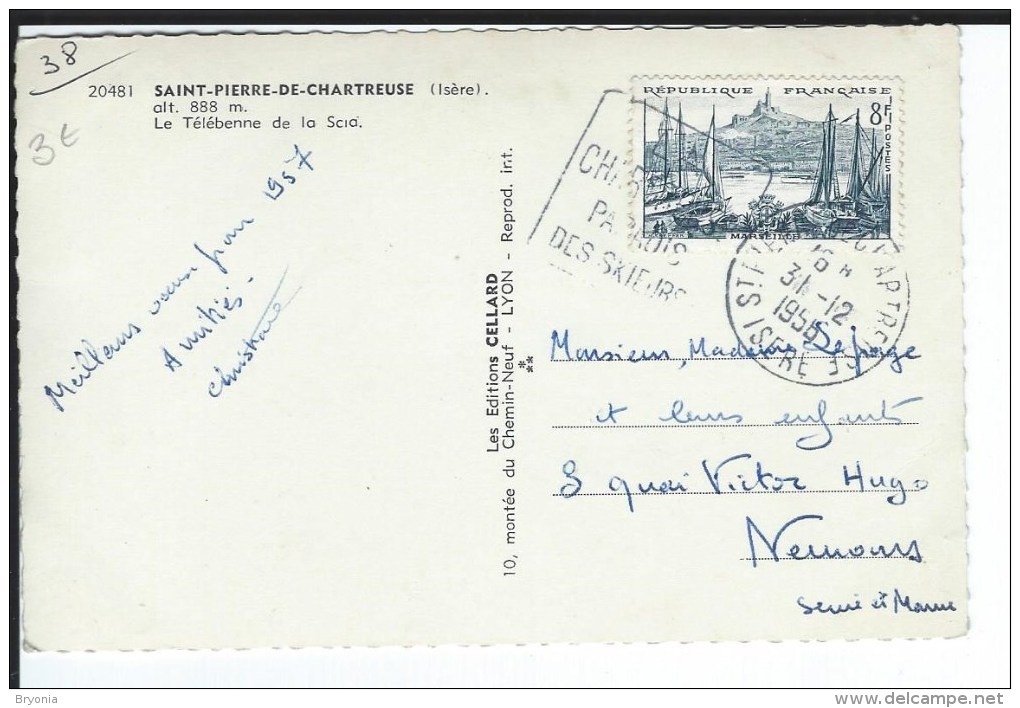 38
20481 SAINT-PIERRE-DE-CHARTREUSE (Isère).
alt. 888 m.
Le Télébenne de la Scia.
3€
Meilleurs vœux pour 1957
Amitiés.
Christiane
Les Editions CELLARD
10, montée du Chemin-Neuf - LYON - Reprod. int.
RÉPUBLIQUE FRANÇAISE
8F
POSTES
MARSEILLE
DES SKIEURS
16 H
31-12
1956
ISERE
Monsieur, Madame
et leurs enfants
8 quai Victor Hugo
Nemours
Seine et Marne
Bryonia
www.delcampe.net